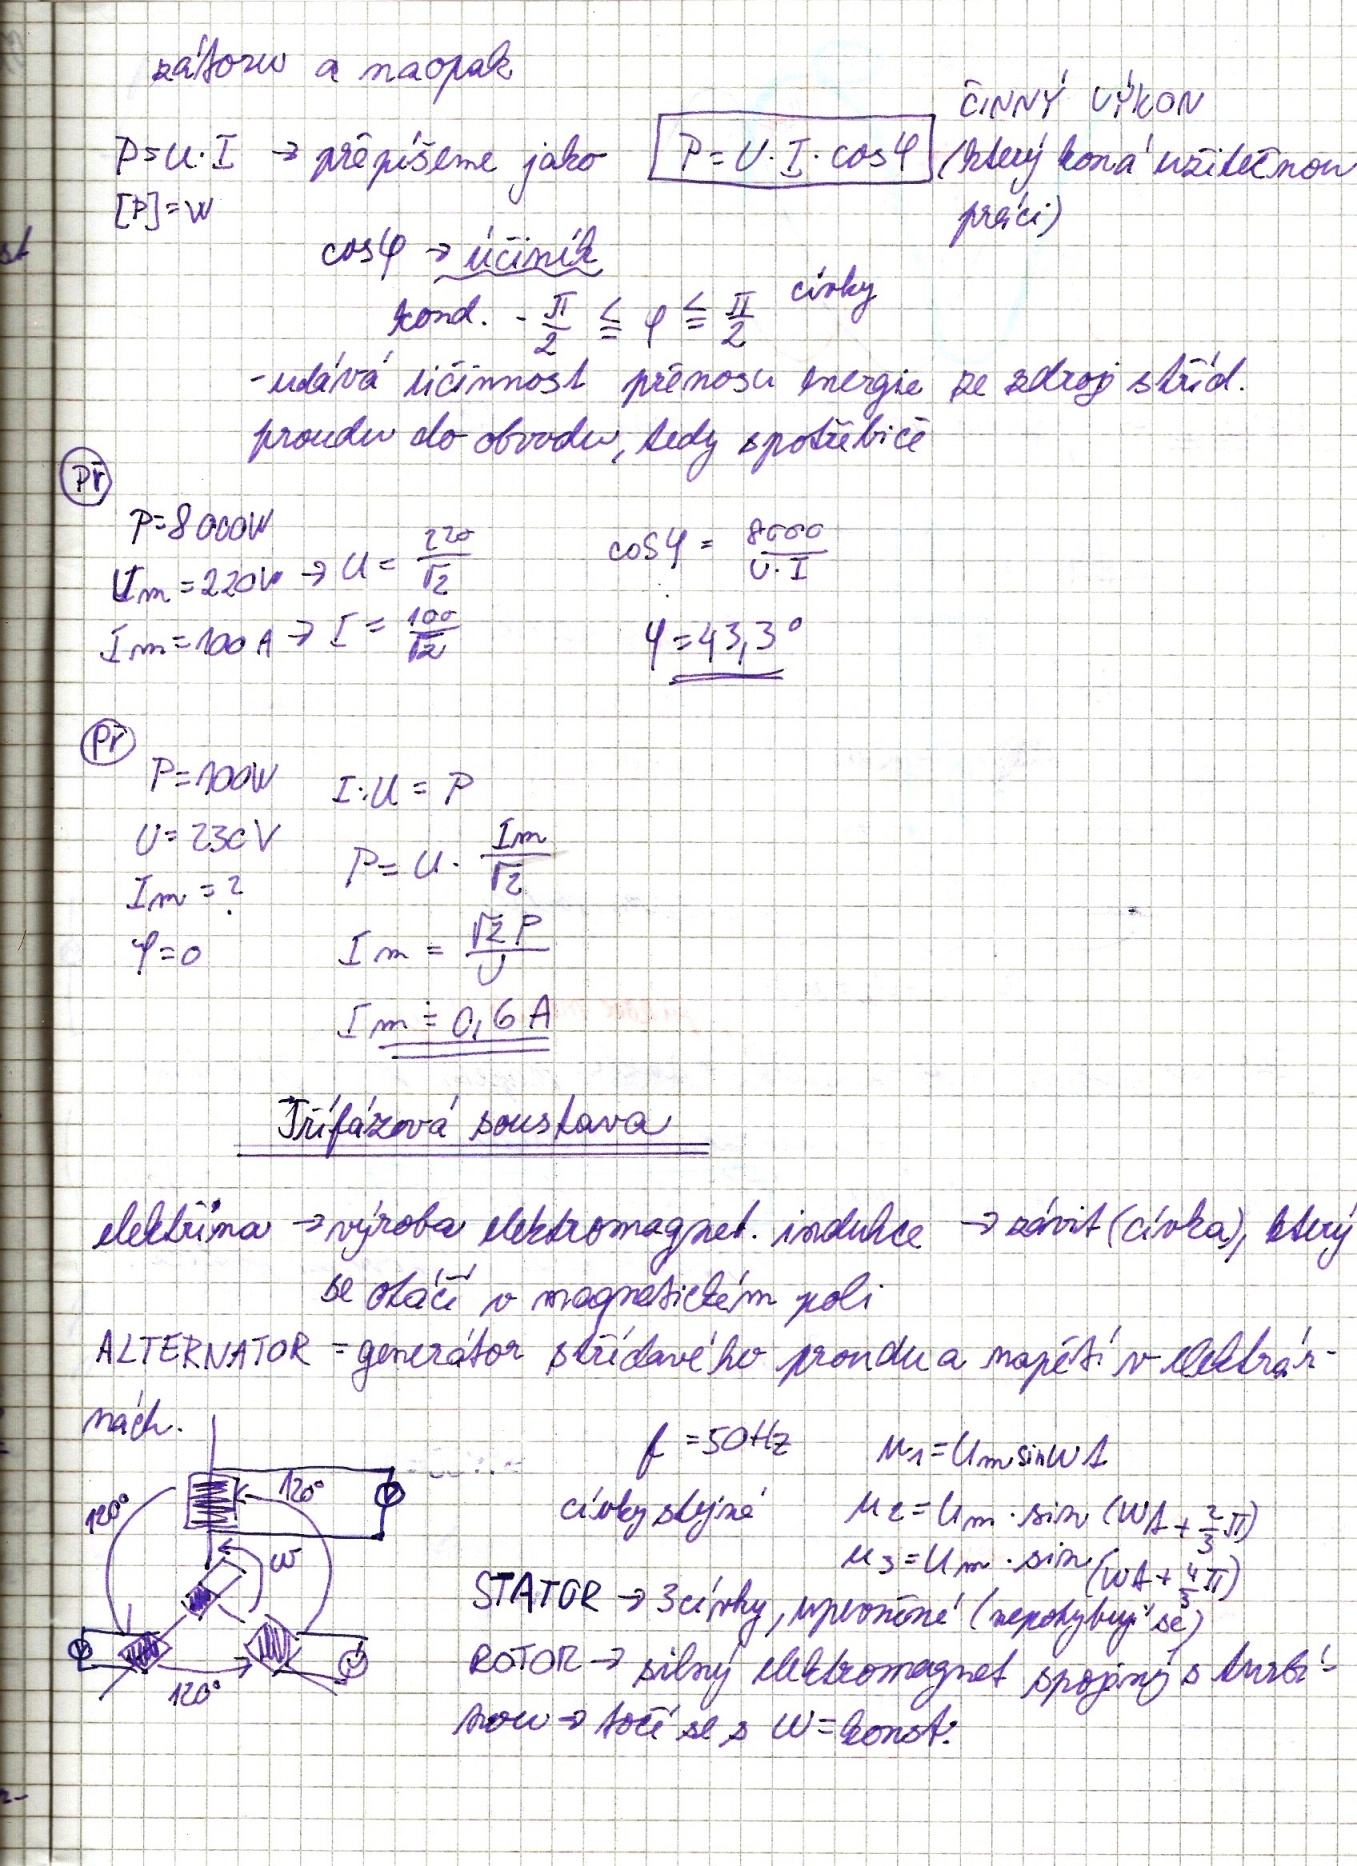 zátoru a naopak
ČINNÝ VÝKON
P=U·I → přepíšeme jako P=U·I·cosφ (který koná užitečnou
[P]=W práci)
cosφ → účiník
kond. -π/2 ≦ φ ≦ π/2 cívky
-udává účinnost přenosu energie ze zdroj stříd.
proudu do obvodu, tedy spotřebiče
Př
P=8000W
Um=220V → U=220/√2 cosφ = 8000/U·I
Im=100A → I=100/√2 φ=43,3°
Př
P=100W I·U=P
U=230V P=U·Im/√2
Im=?
φ=0 Im=√2P/U
Im≐0,6A
Třífázová soustava
elektřina → výroba elektromagnet. indukce → závit (cívka), který
se otáčí v magnetickém poli
ALTERNATOR = generátor střídavého proudu a napětí v elektrár-
nách.
f=50Hz u1=Um sinωt
cívky stejné u2=Um·sin(ωt+2/3π)
u3=Um·sin(ωt+4/3π)
120°
120°
ω
120°
STATOR → 3 cívky, upevněné (nepohybují se)
ROTOR → silný elektromagnet spojený s turbí-
nou → točí se s ω=konst.